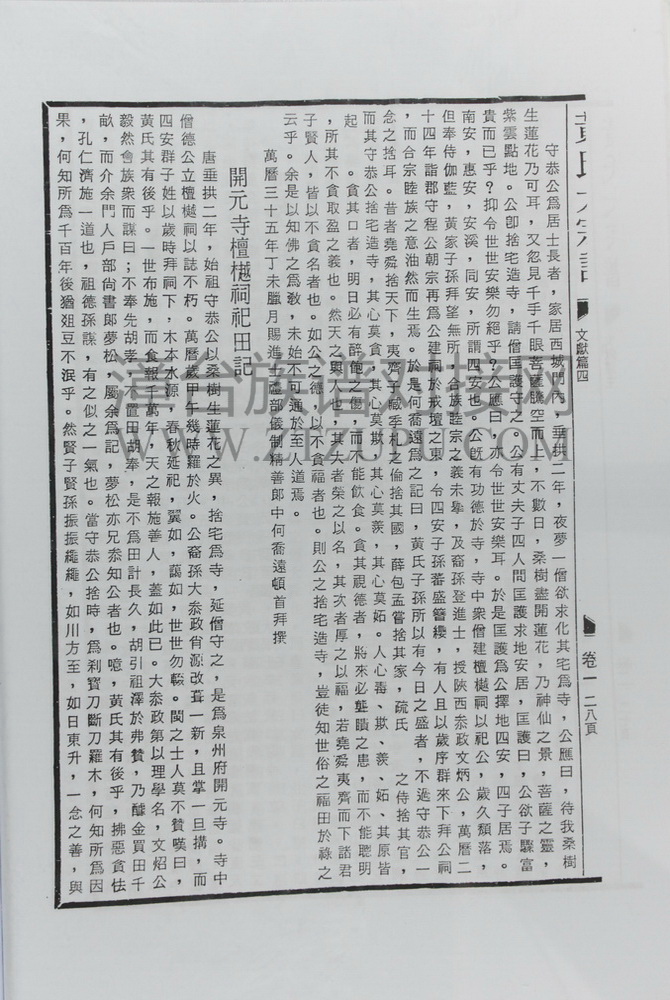 黃氏大宗譜
文獻篇四
卷一 二八頁
守恭公為居士長者，家居西城門內，垂拱二年，夜夢一僧欲求化其宅為寺，公應曰，待我桑樹
生蓮花乃可耳，又忽見千手千眼菩薩騰空而上，不數日，桑樹盡開蓮花，乃神仙之景，菩薩之靈，
紫雲點地。公卽捨宅造寺，請僧匡護守之。公有丈夫子四人問匡護求地安居，匡護曰，公欲子驟富
貴而已乎？抑令世世安樂勿絕乎？公應曰，亦令世世安樂耳。於是匡護為公擇地四安，四子居焉。
南安，惠安，安溪，同安，所謂四安也。公旣有功德於寺，寺中衆僧建檀樾祠以祀公，歲久頹落，
但奉侍伽藍，黃家子孫拜望無所，合族睦宗之義未擧，及裔孫登進士，授陝西叅政文炳公，萬曆二
十四年詣郡守程公朝宗再為公建祠於戒壇之東，令四安子孫蕃盛簪纓，有人且以歲序群來下拜公祠
，而合宗睦族之意油然而生焉。於是何喬遠為之記曰，黃氏子孫所以有今日之盛者，不逃守恭公一
念之捨耳。昔者堯舜捨天下，夷齊子臧季札之倫捨其國，薛包孟嘗捨其家，疏氏　之侍捨其官，
而其守恭公捨宅造寺，其心莫貪，其心莫欺，其心莫羨，其心莫妬。人心毒、欺、羨、妬、其原皆
起　。貪其口者，明日必有醉飽之傷，而不能飲食。貪其視德者，將來必聾瞶之患，而不能聰明
，所其不貪取盈之義也。然天之與人也，其大者榮之以名，其次者厚之以福，若堯舜夷齊而下諸君
子賢人，皆以不貪名者也。如公之德，以不貪福者也。則公之捨宅造寺，豈徒知世俗之福田於祿之
云乎。余是以知佛之為敎，未始不可通於至人道焉。
萬曆三十五年丁未臘月賜進士禮部儀制精善郎中何喬遠頓首拜撰
開元寺檀樾祠祀田記
唐垂拱二年，始祖守恭公以桑樹生蓮花之異，捨宅為寺，延僧守之，是為泉州府開元寺。寺中
僧德公立檀樾祠以誌不朽。萬曆歲甲午幾時羅於火。公裔孫大叅政肎源改葺一新，且掌一旦搆，而
四安群子姓以歲時拜祠下，木本水源，春秋延祀，翼如，藹如，世世勿輟。閩之士人莫不贊嘆曰，
黃氏其有後乎。一世布施，而食報千萬年，天之報施善人，蓋如此已。大叅政第以理學名，文炤公
毅然會族衆而謀曰；不奉先胡孝，不置田胡奉，是不為田計長久，胡引祖澤於弗贊，乃醵金買田千
畝，而介余門人戶部尙書郎夢松，屬余為記，夢松亦兄叅知公者也。噫，黃氏其有後乎，拂惡貪怯
，孔仁濟施一道也，祖德孫謀，有之似之一氣也。當守恭公捨時，為刹寶刀斷刀羅木，何知所為因
果，何知所為千百年後猶俎豆不泯乎。然賢子賢孫振振繩繩，如川方至，如日東升，一念之善，與
津台族谱对接网
WWW.ZTZUPU.COM